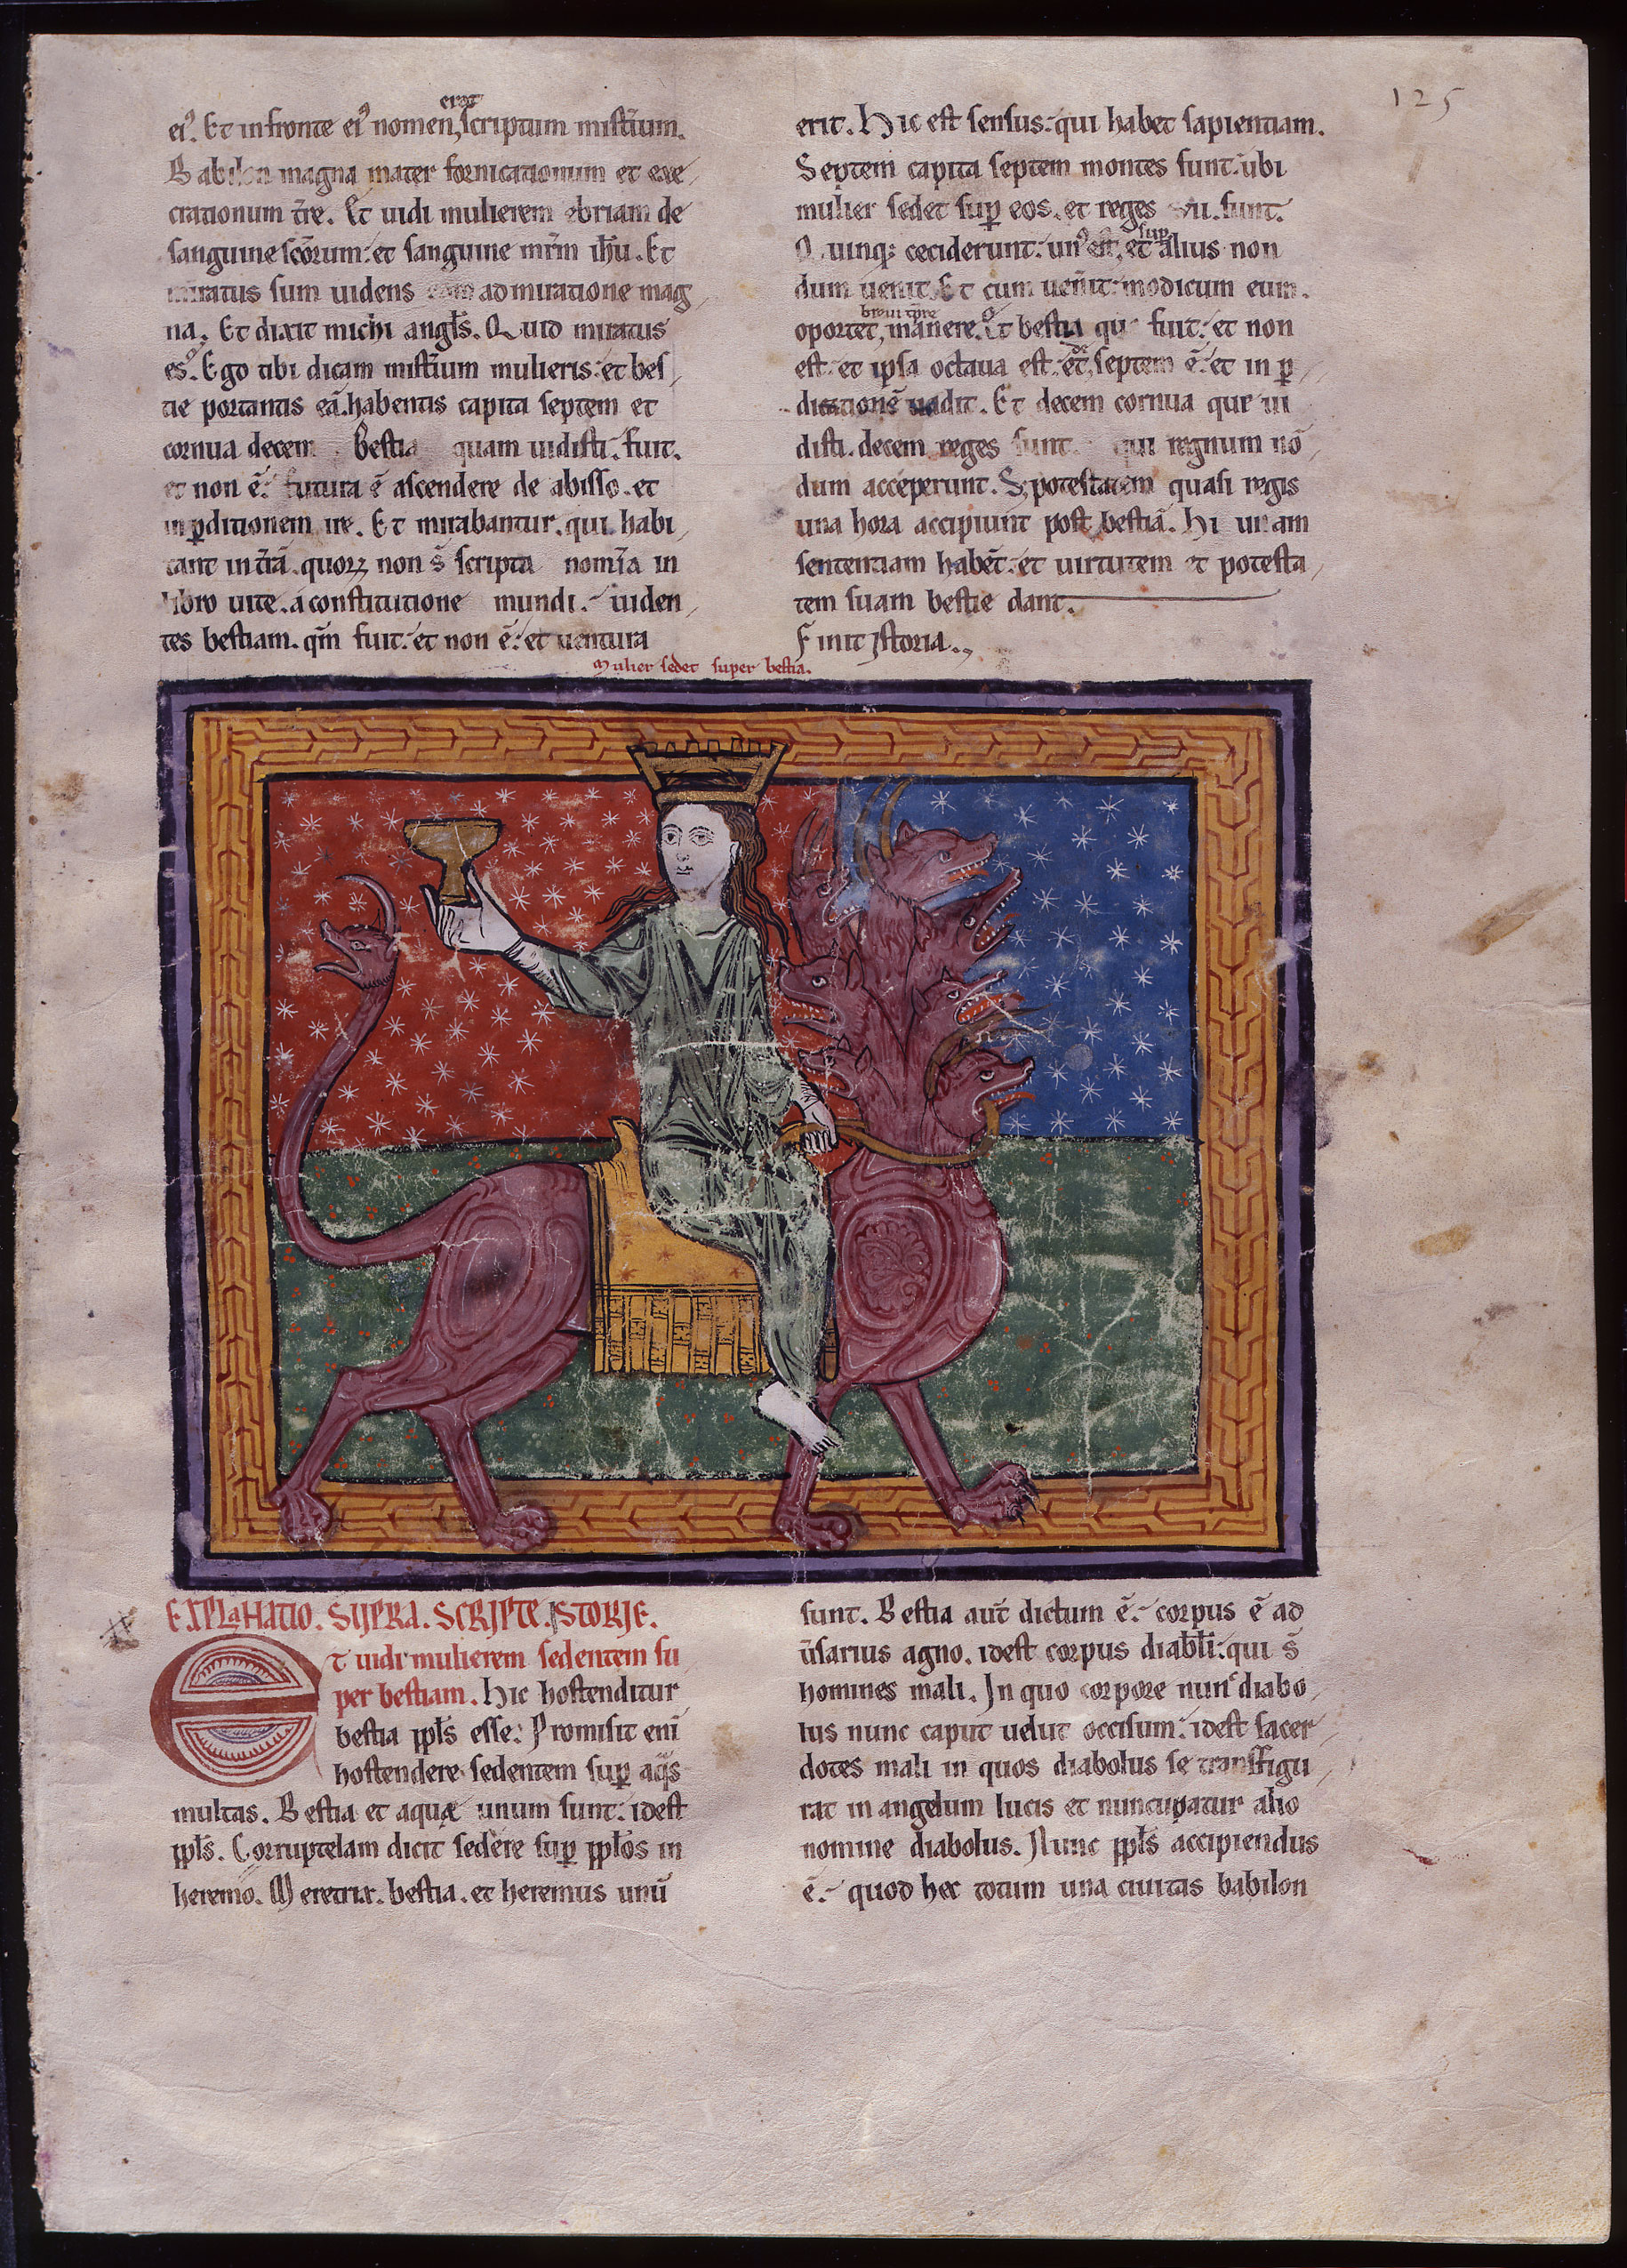 125
erat
ei᷒. Et in fronte ei᷒ nomen, scriptum mist̄ium.
Babilon magna mater fornicationum et exe
crationum t̄re. Et uidi mulierem ebriam de
sanguine sc̄orum: et sanguine mr̄m ih̄u. Et
miratus sum uidens eam admiratione mag
na. Et dixit michi angl̄s. Quid miratus
es. Ego tibi dicam mist̄ium mulieris: et bes
tie portantis eā. habentis capita septem et
cornua decem Bestia quam uidisti. fuit.
et non ē: futura ē ascendere de abisso. et
in ꝑditionem ire. Et mirabantur. qui habi
tant in t̄rā. quoꝝ non s̄ scripta nomīa in
libro uite. a constitutione mundi. uiden
tes bestiam. qm̄ fuit: et non ē: et uentura
erit. Hic est sensus: qui habet sapientiam.
Septem capita septem montes sunt. ubi
mulier sedet suꝑ eos. et reges vii. sunt.
sup
Quinqꝫ ceciderunt: un᷒ est, et alius non
dum uenit. Et cum uen̄it: modicum eum.
breui tp̄re
oportet, manere. Et bestia que fuit: et non
de
est: et ipsa octaua est: et, septem ē: et in ꝑ
ditionē uadit. Et decem cornua que ui
disti. decem reges sunt qui regnum nō
dum acceperunt. Sꝫ potestatem quasi regis
una hora accipiunt post bestiā. Hi unam
sententiam habēt: et uirtutem et potesta
tem suam bestie dant.
Finit istoria.
Mulier sedet super bestia.
EXPLaNATIO. SUPRA. SCRIPTE. ISTORIE.
Et uidi mulierem sedentem su
per bestiam. Hic hostenditur
bestia ppl̄s esse: Promisit enī
hostendere sedentem suꝑ aq̄s
multas. Bestia et aquæ unum sunt: idest
ppl̄s. Corruptelam dicit sedere suꝑ ppl̄os in
heremo. Meretrix. bestia. et heremus unū
sunt. Bestia aut̄ dictum ē: corpus ē ad
ūsarius agno. idest corpus diabl̄i: qui s̄
homines mali. In quo corpore nunc diabo
lus nunc caput uelut occisum: idest sacer
dotes mali in quos diabolus se transfigu
rat in angelum lucis et nuncupatur alio
nomine diabolus. Nunc ppl̄s accipiendus
ē: quod hec totum una ciuitas babilon